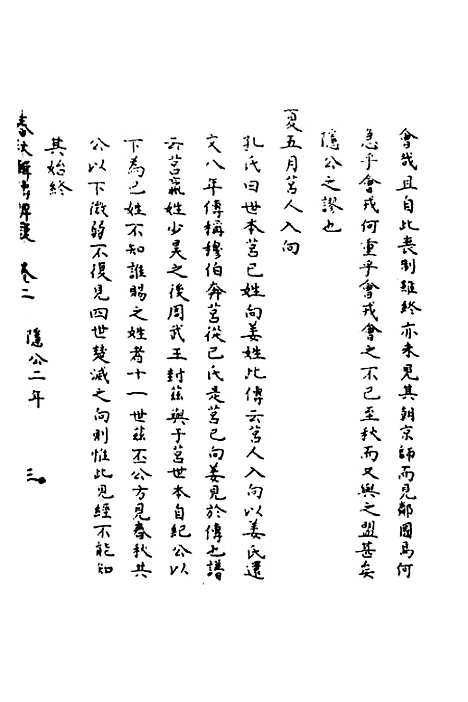 會戎且自此喪制雖終亦未見其朝京師而見鄰國焉何
急乎會戎何重乎會戎會之不已至秋而又與之盟甚矣
隱公之謬也
夏五月莒人入向
孔氏曰世本莒己姓向姜姓此傳云莒人入向以姜氏還
文八年傳稱穆伯奔莒從己氏是莒己向姜見於傳也譜
云莒嬴姓少昊之後周武王封茲與于莒世本自紀公以
下為己姓不知誰賜之姓者十一世茲丕公方見春秋共
公以下微弱不復見四世楚滅之向則惟此見經不能知
其始終
春秋 卷二 隱公二年 三